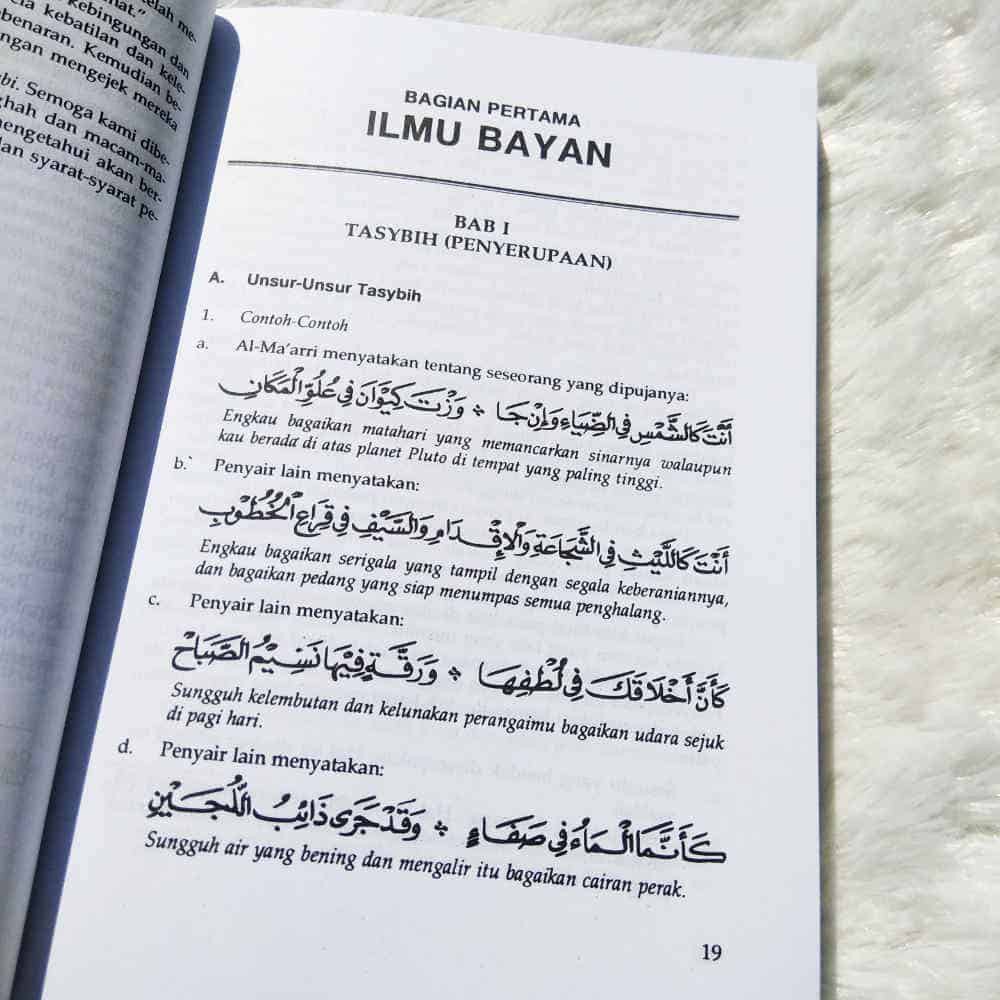 telah me-
hat."
kebingungan dan
ela kebatilan dan kele-
benaran. Kemudian be-
ngan mengejek mereka
bi. Semoga kami dibe-
ghah dan macam-ma-
mengetahui akan ber-
dan syarat-syarat pe-
BAGIAN PERTAMA
ILMU BAYAN
BAB I
TASYBIH (PENYERUPAAN)
A. Unsur-Unsur Tasybih
1. Contoh-Contoh
a. Al-Ma'arri menyatakan tentang seseorang yang dipujanya:
أَنْتَ كَالشَّمْسِ فِي الضِّيَاءِ وَإِنْ جَا ❖ وَزْتَ كَيْوَانَ فِي عُلُوِّ الْمَكَانِ
Engkau bagaikan matahari yang memancarkan sinarnya walaupun
kau berada di atas planet Pluto di tempat yang paling tinggi.
b.` Penyair lain menyatakan:
أَنْتَ كَاللَّيْثِ فِي الشَّجَاعَةِ وَالْإِقْدَامِ وَالسَّيْفِ فِي قِرَاعِ الْخُطُوْبِ
Engkau bagaikan serigala yang tampil dengan segala keberaniannya,
dan bagaikan pedang yang siap menumpas semua penghalang.
c. Penyair lain menyatakan:
كَأَنَّ أَخْلَاقَكَ فِي لُطْفِهَا ❖ وَرِقَّةٍ فِيْهَا نَسِيْمُ الصَّبَاحْ
Sungguh kelembutan dan kelunakan perangaimu bagaikan udara sejuk
di pagi hari.
d. Penyair lain menyatakan:
كَأَنَّمَا الْمَاءُ فِي صَفَاءٍ ❖ وَقَدْ جَرَى ذَائِبُ اللُّجَيْنِ
Sungguh air yang bening dan mengalir itu bagaikan cairan perak.
19